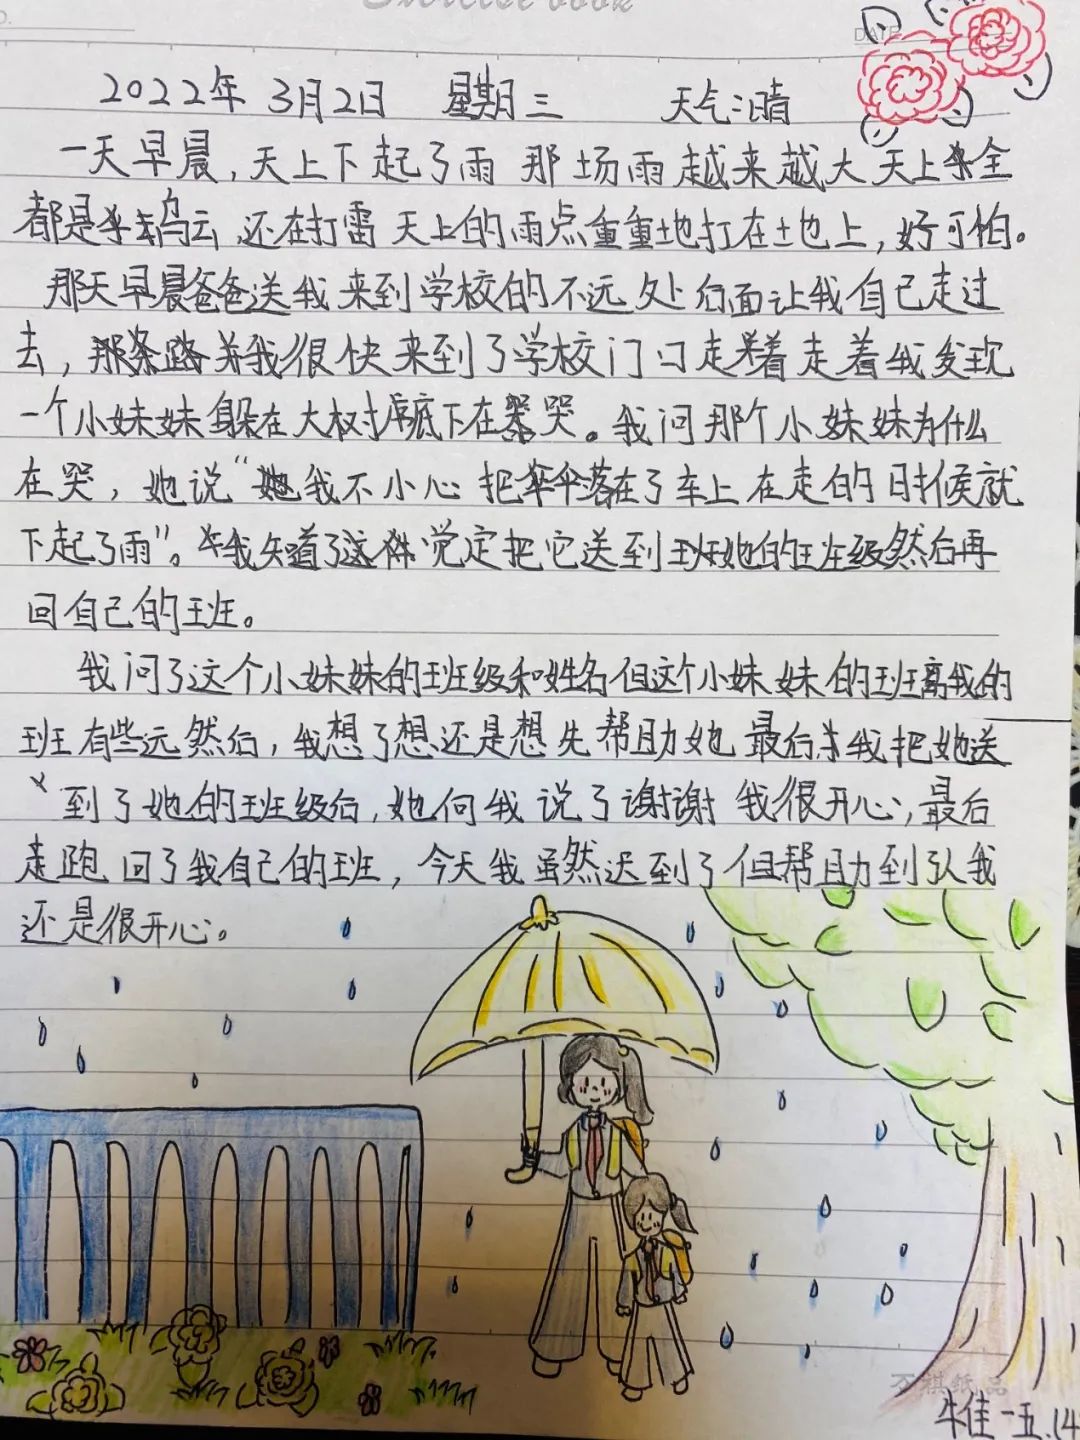 Exercise book
DATE
2022年 3月2日 星期三 天气:晴
一天早晨,天上下起了雨 那场雨越来越大 天上全
都是乌云,还在打雷 天上的雨点重重地打在土地上,好可怕。
那天早晨爸爸送我来到学校的不远处后面让我自己走过
去,那条路我很快来到了学校门口走着走着我发现
一个小妹妹躲在大树底下在哭。我问那个小妹妹为什么
在哭,她说“我不小心把伞落在了车上在走的时候就
下起了雨”。我知道了这件觉定把它送到她的班级然后再
回自己的班。
我问了这个小妹妹的班级和姓名但这个小妹妹的班离我的
班有些远然后,我想了想还是想先帮助她 最后我把她送
到了她的班级后,她向我说了谢谢 我很开心,最后
走跑回了我自己的班,今天我虽然迟到了但帮助到人我
还是很开心。
祺纸品
牛佳一五.14